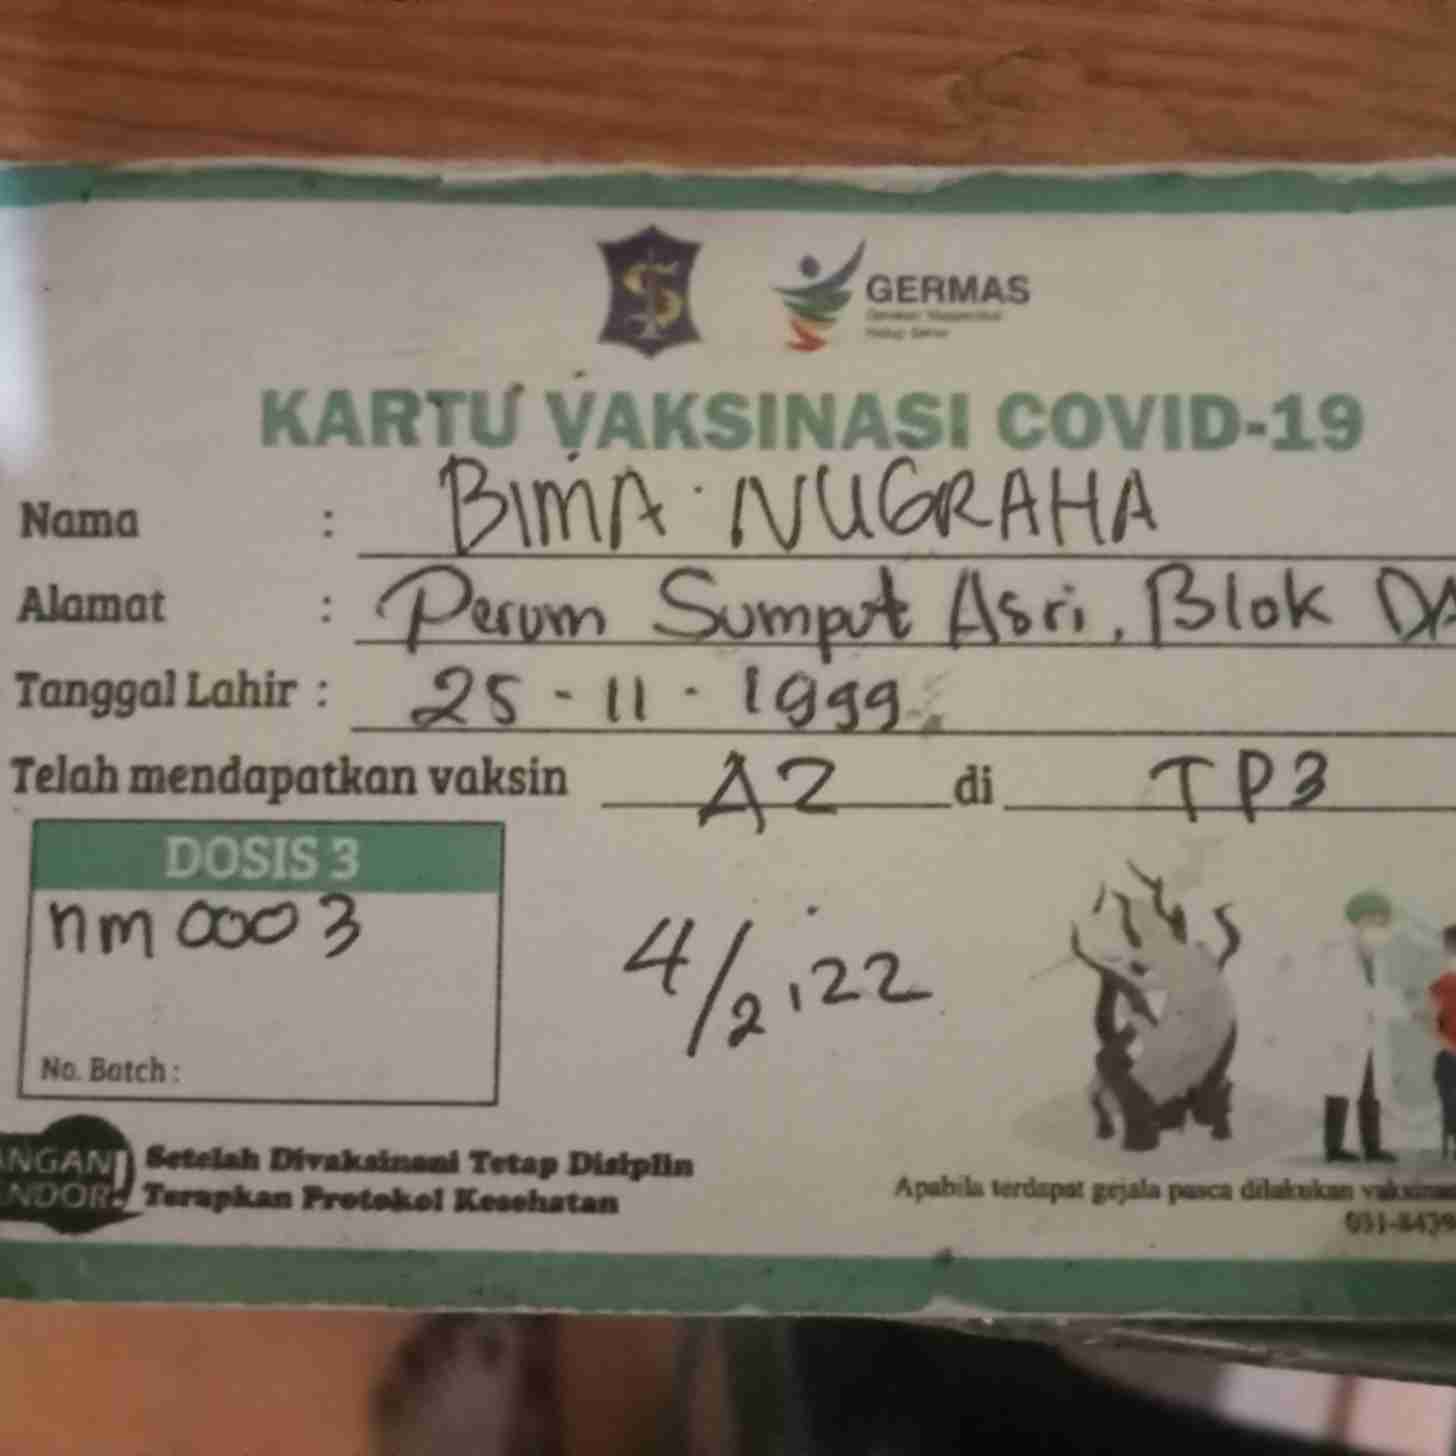 GERMAS
KARTU VAKSINASI COVID-19
Nama : BIMA NUGRAHA
Alamat : Perum Sumput Asri, Blok DA
Tanggal Lahir : 25 - 11 - 1999
Telah mendapatkan vaksin AZ di TP3
DOSIS 3
nm 0003
4/2, 22
No. Batch :
ANGAN
ENDOR!
Setelah Divaksinani Tetap Disiplin
Terapkan Protokol Kesehatan
Apabila terdapat gejala pasca dilakukan
031-8439